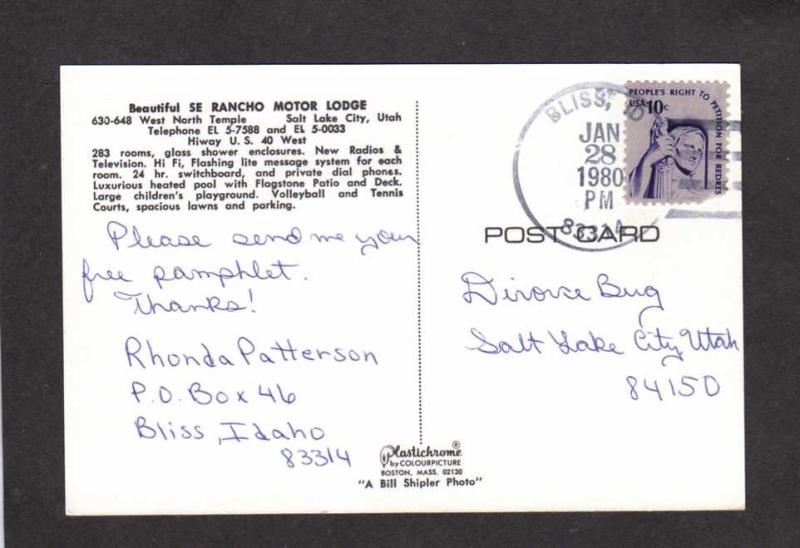 Beautiful SE RANCHO MOTOR LODGE
630-648 West North Temple Salt Lake City, Utah
Telephone EL 5-7588 and EL 5-0033
Hiway U. S. 40 West
283 rooms, glass shower enclosures. New Radios &
Television. Hi Fi, Flashing lite message system for each
room. 24 hr. switchboard, and private dial phones.
Luxurious heated pool with Flagstone Patio and Deck.
Large children's playground. Volleyball and Tennis
Courts, spacious lawns and parking.
Please send me your
free pamphlet.
Thanks!
Rhonda Patterson
P.O. Box 46
Bliss, Idaho
83314
Plastichrome®
by COLOURPICTURE
BOSTON, MASS. 02130
"A Bill Shipler Photo"
BLISS, ID
JAN
28
1980
PM
83314
PEOPLE'S RIGHT TO PETITION FOR REDRES
USA 10c
POST CARD
Divorce Bug
Salt Lake City, Utah
84150